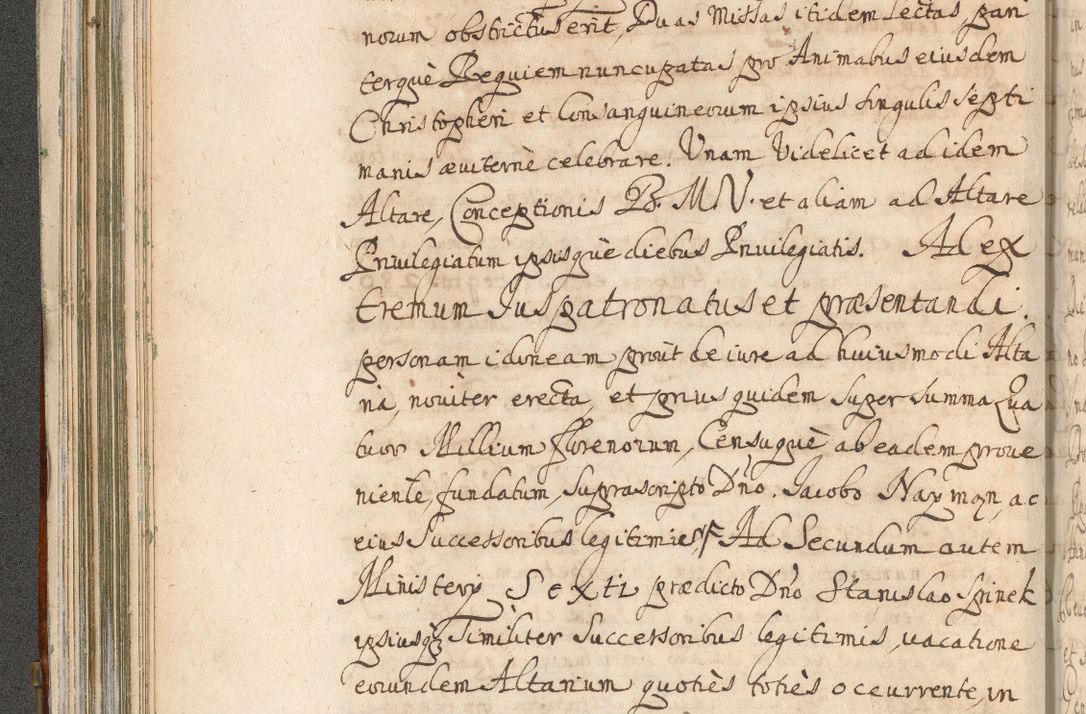 norum obstrictus erit, Duas Missas itidem Lectas, pari
terquè Requiem nuncupatas pro Animabus eiusdem
Christopheri et Consanguineorum ipsius singulis Septi
manis æviternè celebrare. Unam Videlicet ad idem
Altare, Conceptionis B. M. V. et aliam ad Altare
Privilegiatum ipsisquè diebus Privilegiatis. Ad ex
tremum Jus patronatus et præsentandi
personam idoneam prout de iure ad huiusmodi Alta
ria, noviter erecta, et prius quidem super Summa Qua
tuor Millium florenorum, Censuquè ab eadem prove
niente, fundatum, suprascripto Dño. Jacobo Naymon, ac
eius Successoribus legitimis, Ad Secundum autem
Ministerÿ Sexti prædicto Dño Stanislao Spinek
ipsiusq; Similiter Successoribus legitimis, vacatione
eorundem Altarium quotiès totiès occurrente, in